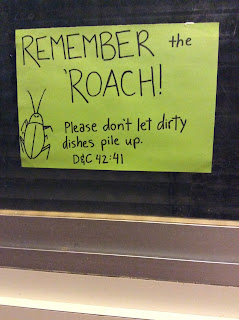 REMEMBER the
'ROACH!
Please don't let dirty
dishes pile up.
D&C 42:41